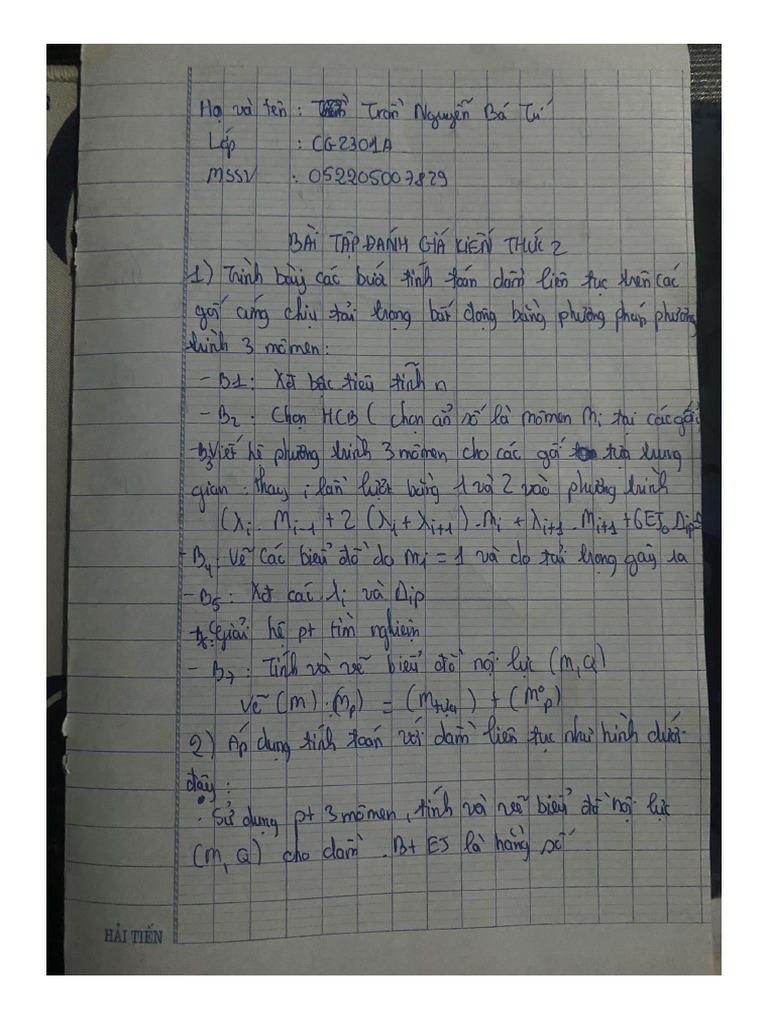 Họ và tên : Trần Nguyễn Bá Tú
Lớp : CG2301A
MSSV : 052205007829
BÀI TẬP ĐÁNH GIÁ KIẾN THỨC 2
1) Trình bày các bước tính toán dầm liên tục trên các
gối cứng chịu tải trọng bất động bằng phương pháp phương
trình 3 mômen :
- B1 : Xđ bậc siêu tĩnh n
- B2 : Chọn HCB ( chọn ẩn số là mômen Mi tại các gối)
- B3 Viết hệ phương trình 3 mômen cho các gối tựa trung
gian : thay i lần lượt bằng 1 và 2 vào phương trình
(λi . Mi-1 + 2 (λ1 + λi+1) . Mi + λi+1 . Mi+1 + 6EJo Δip
+ B4 : Vẽ các biểu đồ do Mi = 1 và do tải trọng gây ra
- B5 : Xđ các λi và Δip
Giải hệ pt tìm nghiệm
- B7 : Tính và vẽ biểu đồ nội lực (M, Q)
Vẽ (M) : (Mp) = (Mtựa) + (M°p)
2) Áp dụng tính toán với dầm liên tục như hình dưới
đây :
. Sử dụng pt 3 mômen, tính và vẽ biểu đồ nội lực
(M, Q) cho dầm . Bt EJ là hằng số
HẢI TIẾN